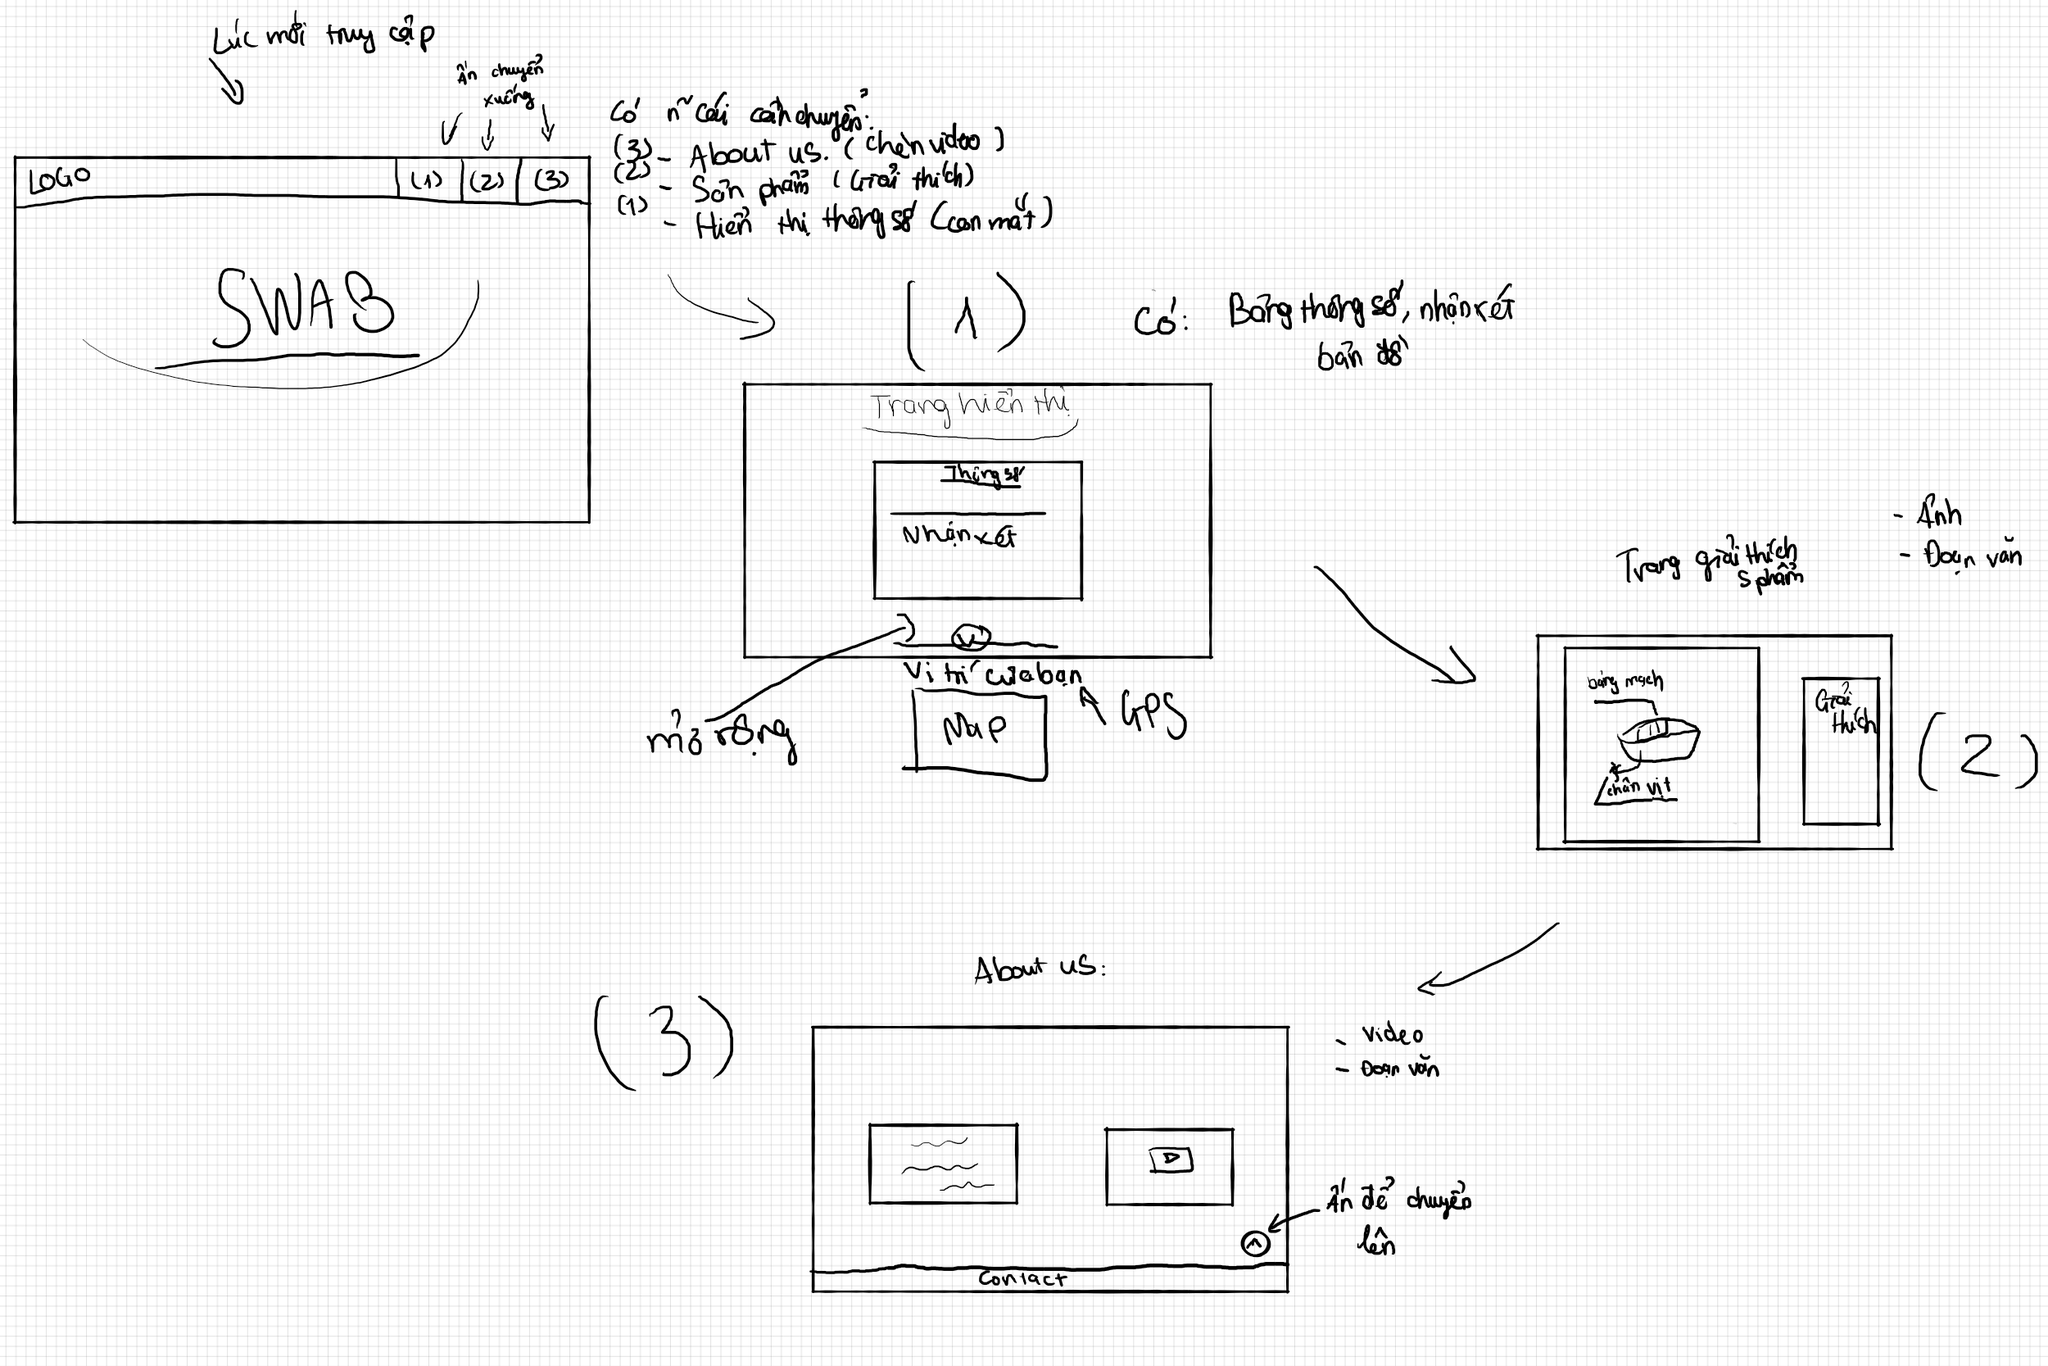 Lúc mới truy cập
Ấn chuyển
xuống
LOGO
(1)
(2)
(3)
SWAB
Có n~ cái cần chuyển:
(3) - About us. (chèn video)
(2) - Sản phẩm (Giải thích)
(1) - Hiển thị thông số (con mắt)
(1)
Có: Bảng thông số, nhận xét
bản đồ
Trang hiển thị
Thông số
Nhận xét
Vị trí của bạn
mở rộng
Map
GPS
- Ảnh
- Đoạn văn
Trang giải thích
s phẩm
bảng mạch
chân vịt
Giải
thích
(2)
About us:
(3)
- Video
- Đoạn văn
Ấn để chuyển
lên
Contact